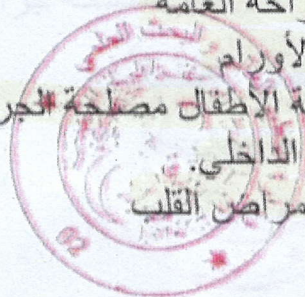 احة العامة
لأورام
ة الأطفال مصلحة الجر
الداخلي.
مراض القلب
البحث العلمي
02